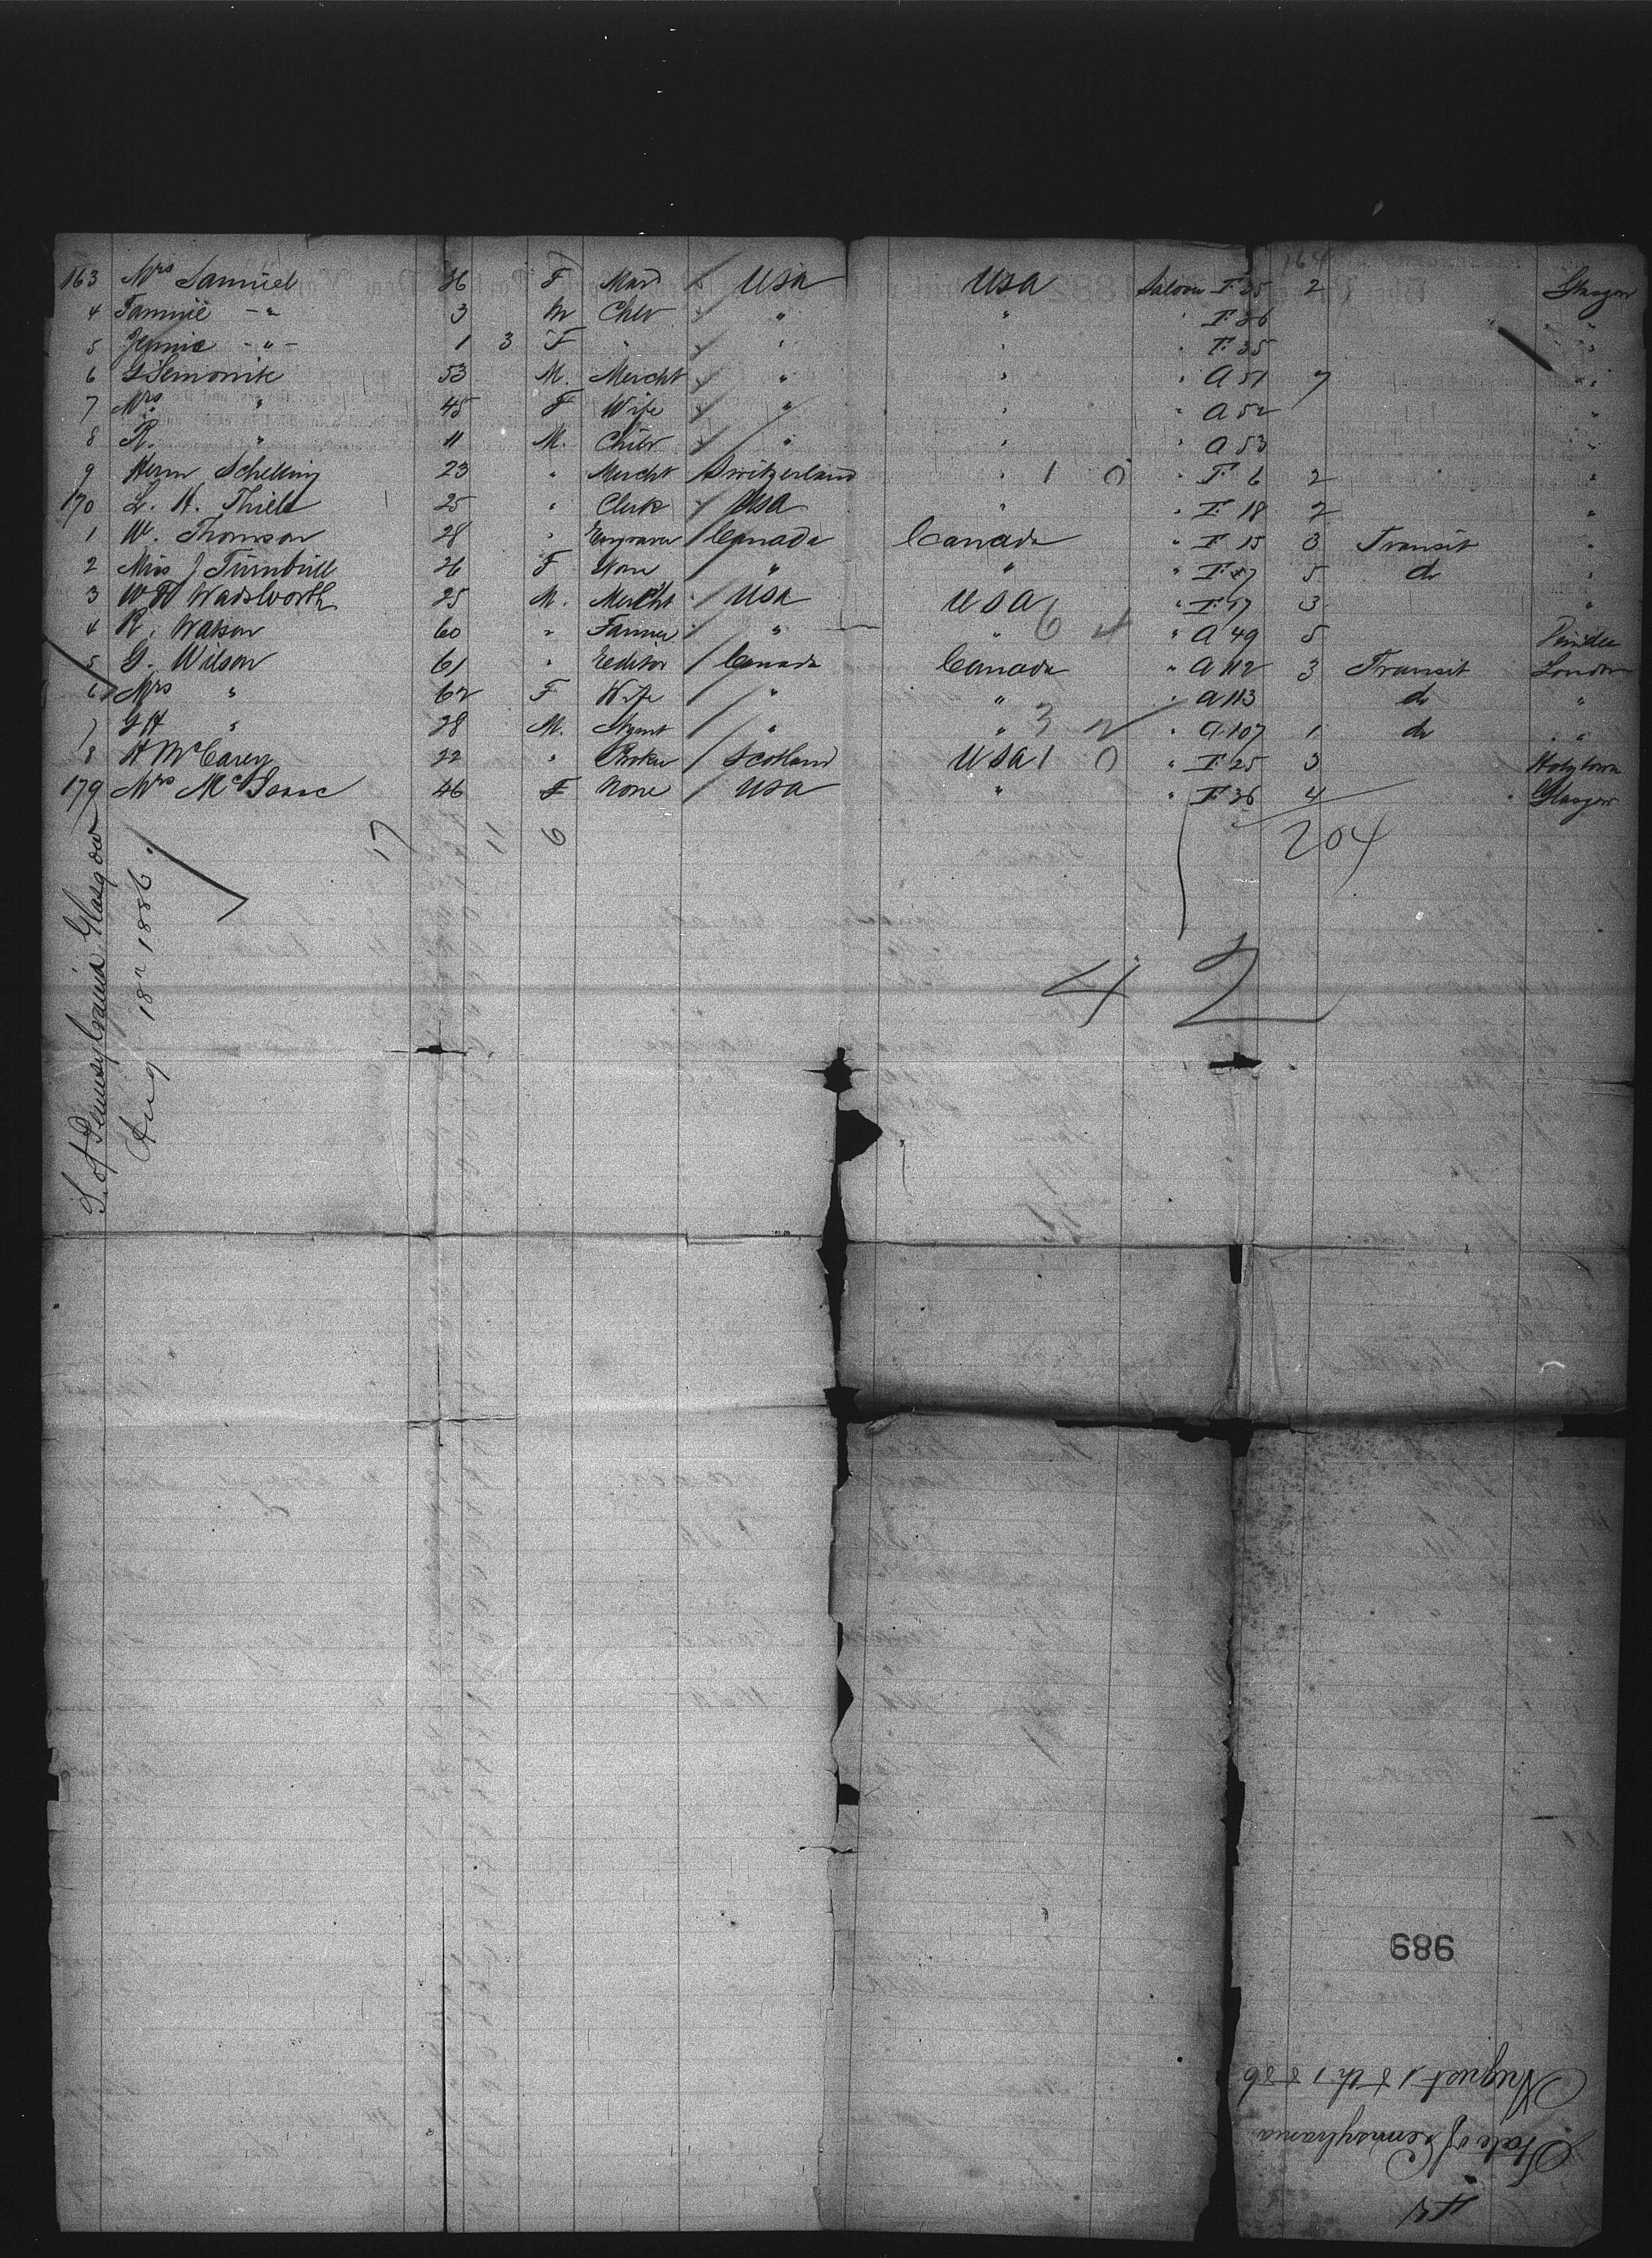 164
163 Mrs Samuel 36 F Mard USA USA Saloon F 35 2 Glasgow
4 Fannie -"- 3 M Child " " " F 36 "
5 Jennie -"- 1 3 F " " " " F 35 "
6 G Lemonik 53 M. Mercht " " " A 51 7 "
7 Mrs " 45 F Wife " " " A 52 "
8 R. " 11 M. Child " " " A 53 "
9 Herm Schelling 23 " Mercht Switzerland " 1 0 " F 6 2 "
170 L. H. Thiele 25 " Clerk USA " " F 18 2 "
1 W. Thomson 28 " Engraver Canada Canada " F 15 3 Transit "
2 Miss J Turnbull 26 F None " " " F 5 do "
3 W H Wadsworth 25 M. Mercht USA USA " F 17 3 "
4 R. Watson 60 " Farmer " " 6 4 " A 49 5 Dundee
5 G. Wilson 61 " Editor Canada Canada " A 112 3 Transit London
6 Mrs " 62 F Wife " " " A 113 do "
7 G H " 28 M. Agent " " 3 2 " A 107 1 do "
8 H McCarey 22 " Broker Scotland USA 1 0 " F 25 3 Holytown
179 Mrs McIsaac 46 F None USA " " F 36 4 Glasgow
17 11 6 204
S. of Pennsylvania Glasgow
Aug 18th 1886.
4 2
989
August 18th 1886
State of Pennsylvania